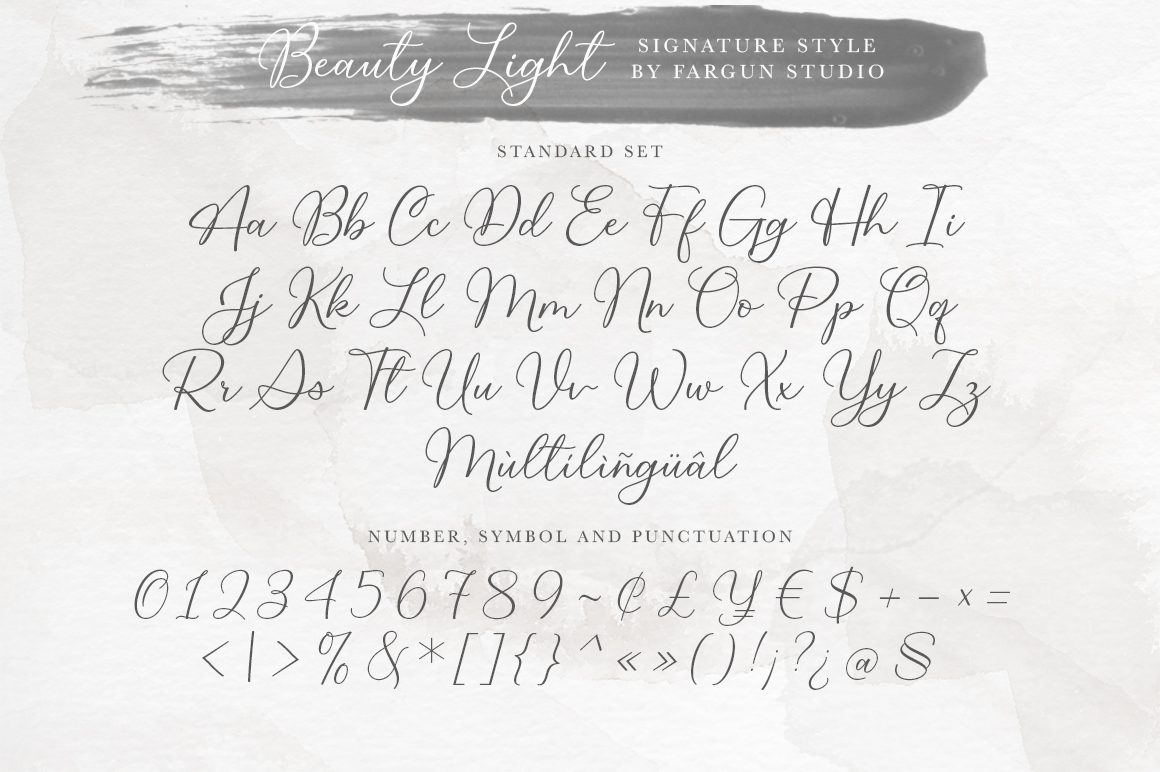 Beauty Light
SIGNATURE STYLE
BY FARGUN STUDIO
STANDARD SET
Aa Bb Cc Dd Ee Ff Gg Hh Ii
Jj Kk Ll Mm Nn Oo Pp Qq
Rr Ss Tt Uu Vv Ww Xx Yy Zz
Mùltílìñgüâl
NUMBER, SYMBOL AND PUNCTUATION
0 1 2 3 4 5 6 7 8 9 ~ ₵ £ ¥ € $ + − × =
< | > % & * [ ] { } ^ « » ( ) ! ¡ ? ¿ @ S